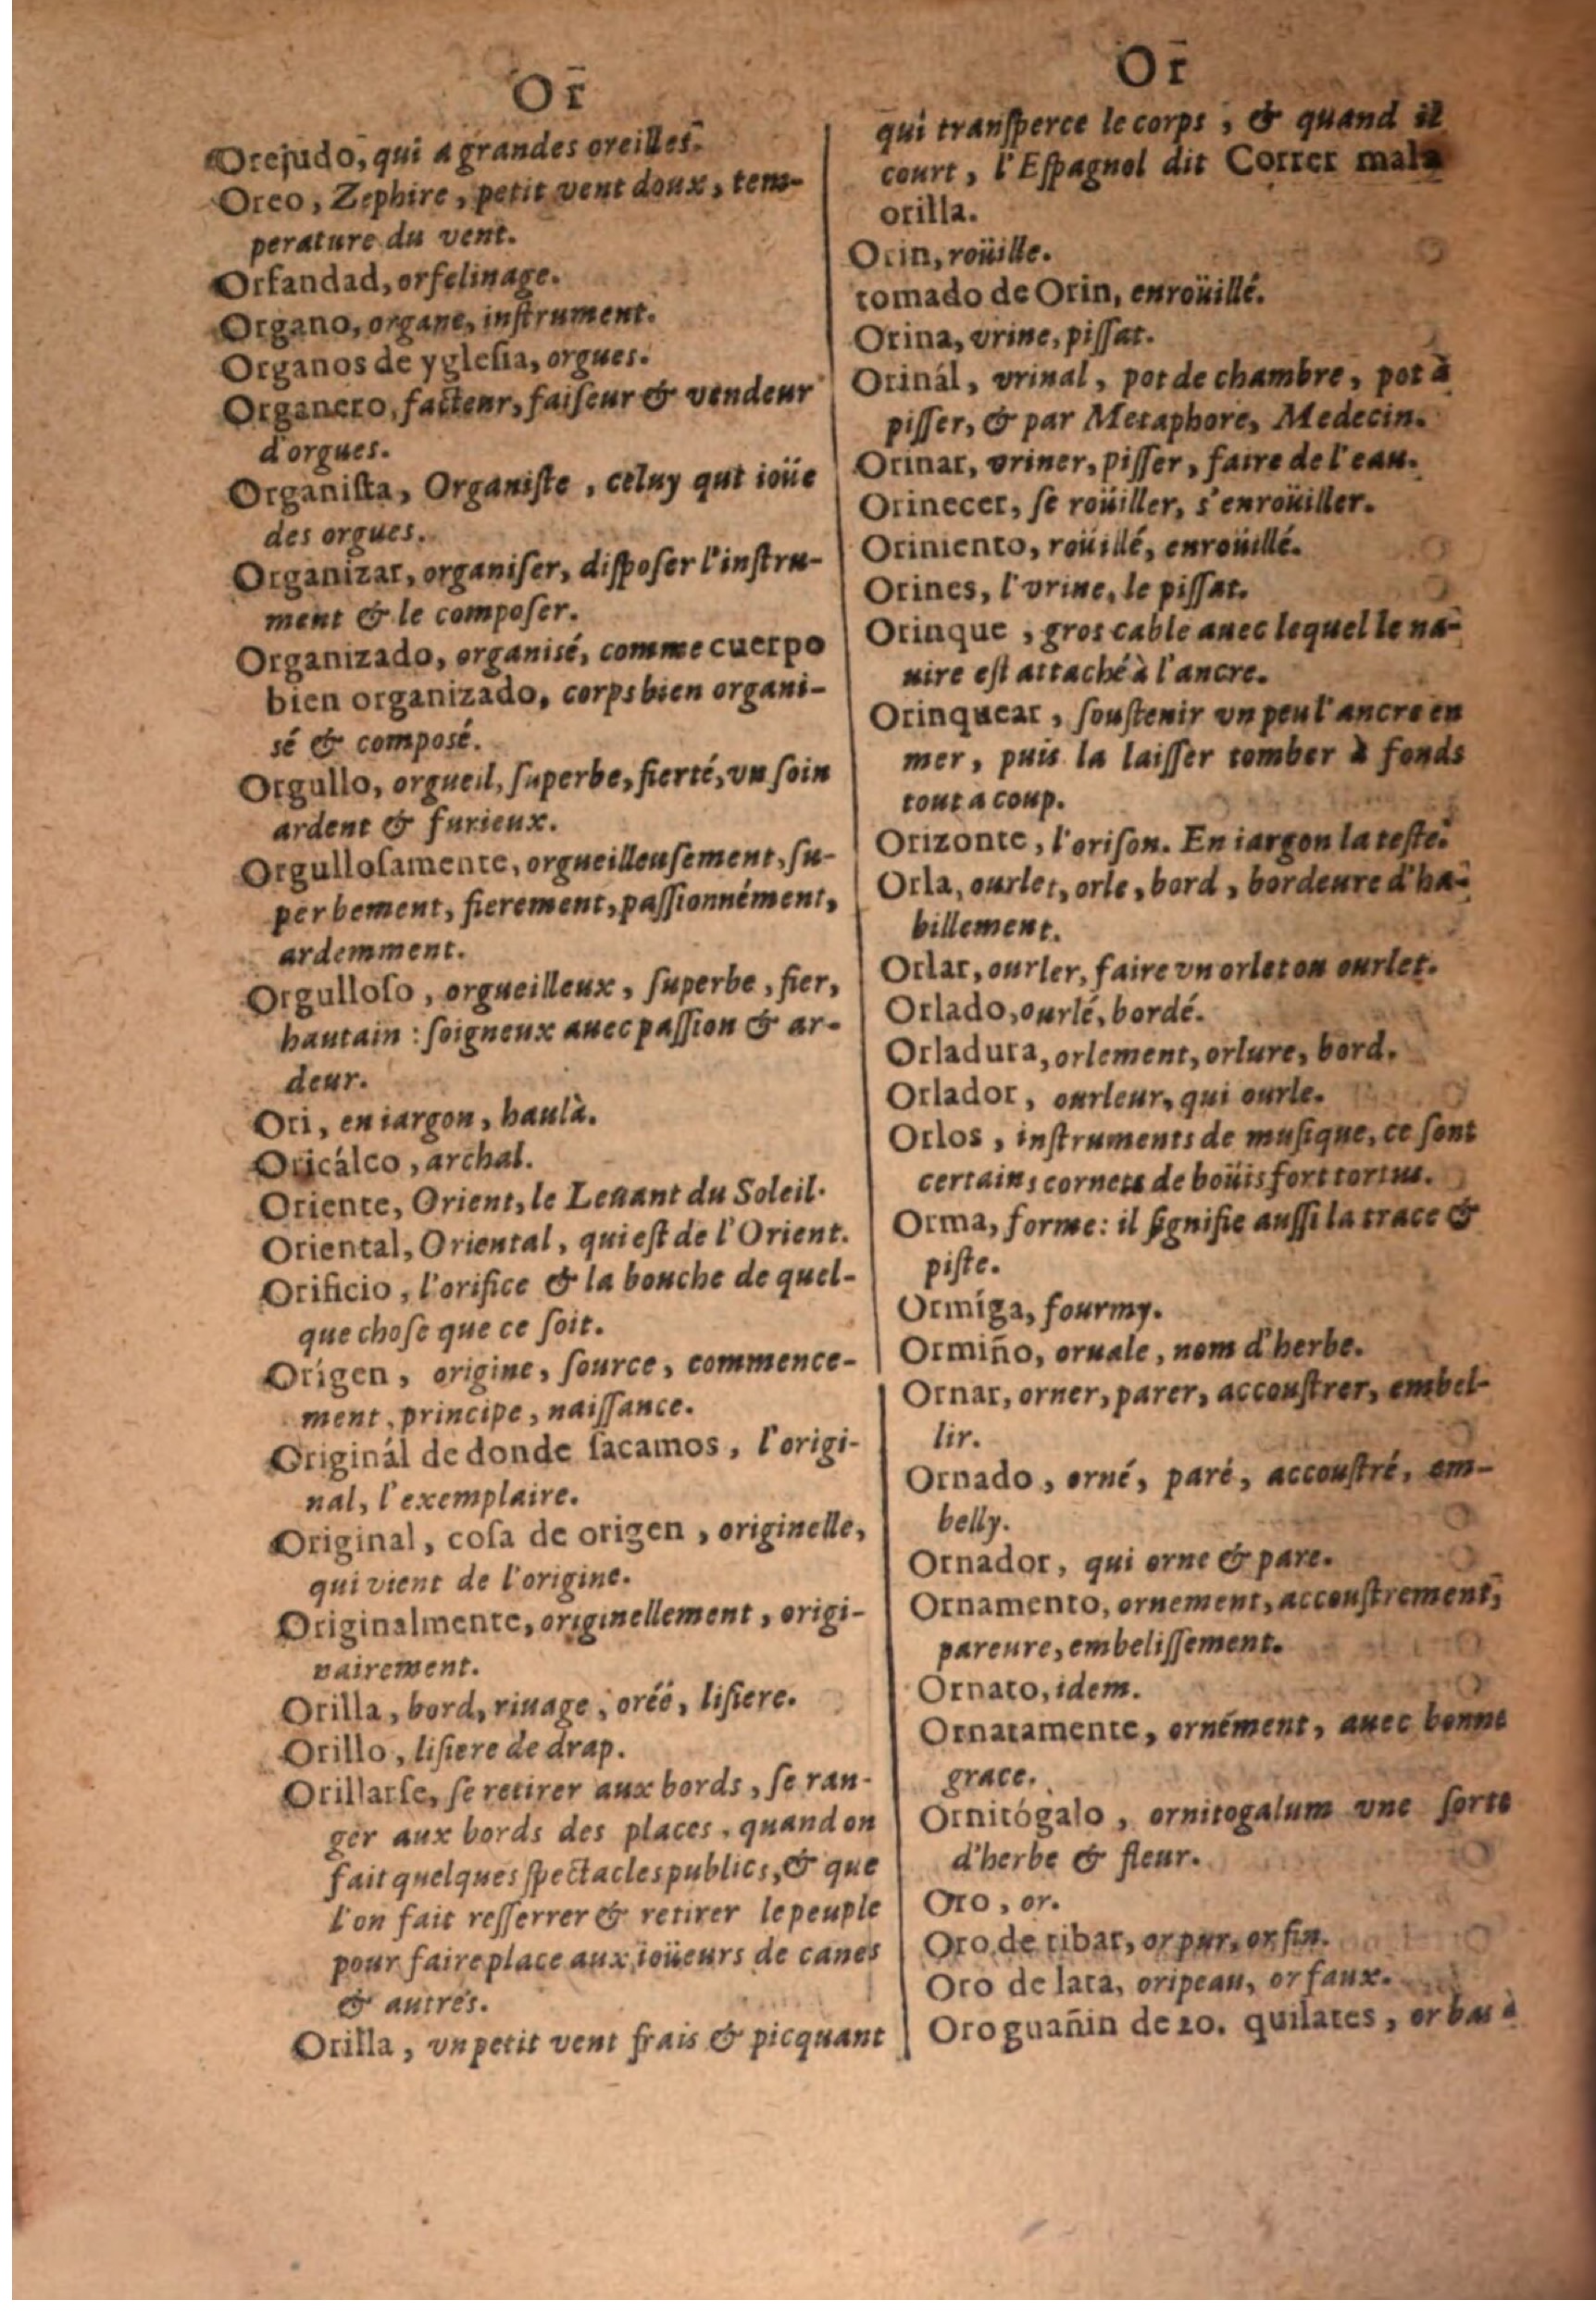 Or
Orejudo, qui a grandes oreilles.
Oreo, Zephire, petit vent doux, tem-
perature du vent.
Orfandad, orfelinage.
Organo, organe, instrument.
Organos de yglesia, orgues.
Organero, facteur, faiſeur & vendeur
d'orgues.
Organiſta, Organiſte, celuy qui ioüe
des orgues.
Organizar, organiſer, diſpoſer l'inſtru-
ment & le compoſer.
Organizado, organisé, comme cuerpo
bien organizado, corps bien organi-
sé & composé.
Orgullo, orgueil, ſuperbe, fierté, vn ſoin
ardent & furieux.
Orgulloſamente, orgueilleuſement, ſu-
perbement, fierement, paſſionnément,
ardemment.
Orgulloſo, orgueilleux, ſuperbe, fier,
hautain : ſoigneux auec paſſion & ar-
deur.
Ori, en iargon, haulà.
Oricálco, archal.
Oriente, Orient, le Leuant du Soleil.
Oriental, Oriental, qui eſt de l'Orient.
Orificio, l'orifice & la bouche de quel-
que choſe que ce ſoit.
Orígen, origine, ſource, commence-
ment, principe, naiſſance.
Originál de donde ſacamos, l'origi-
nal, l'exemplaire.
Original, coſa de origen, originelle,
qui vient de l'origine.
Originalmente, originellement, origi-
nairement.
Orilla, bord, riuage, oréé, liſiere.
Orillo, liſiere de drap.
Orillarſe, ſe retirer aux bords, ſe ran-
ger aux bords des places, quand on
fait quelques ſpectacles publics, & que
l'on fait reſſerrer & retirer le peuple
pour faire place aux ioüeurs de canes
& autres.
Orilla, vn petit vent frais & picquant
Or
qui tranſperce le corps, & quand il
court, l'Eſpagnol dit Correr mala
orilla.
Orin, roüille.
tomado de Orin, enroüillé.
Orina, vrine, piſſat.
Orinál, vrinal, pot de chambre, pot à
piſſer, & par Metaphore, Medecin.
Orinar, vriner, piſſer, faire de l'eau.
Orinecer, ſe roüiller, s'enroüiller.
Oriniento, roüillé, enroüillé.
Orines, l'vrine, le piſſat.
Orinque, gros cable auec lequel le na-
uire eſt attaché à l'ancre.
Orinquear, ſouſtenir vn peu l'ancre en
mer, puis la laiſſer tomber à fonds
tout a coup.
Orizonte, l'oriſon. En iargon la teſte.
Orla, ourlet, orle, bord, bordeure d'ha-
billement.
Orlar, ourler, faire vn orlet ou ourlet.
Orlado, ourlé, bordé.
Orladura, orlement, orlure, bord.
Orlador, ourleur, qui ourle.
Orlos, inſtruments de muſique, ce ſont
certains cornets de boüis fort tortus.
Orma, forme: il ſignifie auſſi la trace &
piſte.
Ormíga, fourmy.
Ormiño, oruale, nom d'herbe.
Ornar, orner, parer, accouſtrer, embel-
lir.
Ornado, orné, paré, accouſtré, em-
belly.
Ornador, qui orne & pare.
Ornamento, ornement, accouſtrement,
pareure, embeliſſement.
Ornato, idem.
Ornatamente, ornément, auec bonne
grace.
Ornitógalo, ornitogalum vne ſorte
d'herbe & fleur.
Oro, or.
Oro de tibar, or pur, or fin.
Oro de lata, oripeau, or faux.
Oro guañin de 20. quilates, or bas à